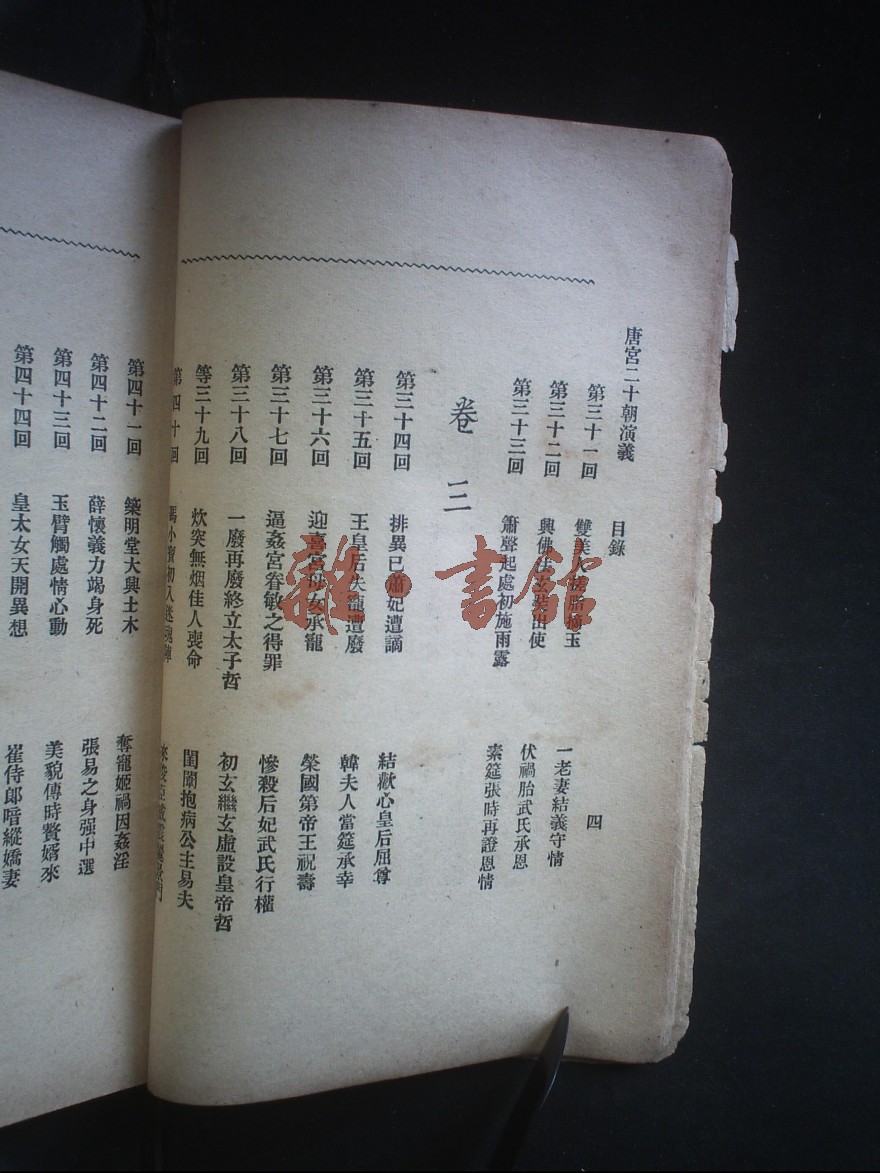 唐宮二十朝演義 目錄 四
第三十一回 雙美人 脂 玉 一老妻結義守情
第三十二回 興佛法玄奘出使 伏禍胎武氏承恩
第三十三回 簫聲起處初施雨露 索筵張時再證恩情
卷三
第三十四回 排異己蕭妃遭謫 結歡心皇后屈尊
第三十五回 王皇后失寵遭廢 韓夫人當筵承幸
第三十六回 迎喜宮母女承寵 榮國第帝王祝壽
第三十七回 逼姦宮眷敏之得罪 慘殺后妃武氏行權
第三十八回 一廢再廢終立太子哲 初玄繼玄虛設皇帝哲
等三十九回 炊突無烟佳人喪命 閨闥抱病公主易夫
第四十回 馮小寶初入迷魂陣
第四十一回 築明堂大興土木 奪寵姬禍因姦淫
第四十二回 薛懷義力竭身死 張易之身强中選
第四十三回 玉臂觸處情心動 美貌傳時贅婿來
第四十四回 皇太女天開異想 崔侍郎暗縱嬌妻
雜·書館